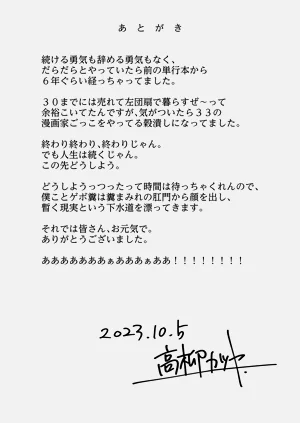 あとがき
続ける勇気も辞める勇気もなく、
だらだらとやっていたら前の単行本から
６年ぐらい経っちゃってました。
３０までには売れて左団扇で暮らすぜ〜って
余裕こいてたんですが、気がついたら３３の
漫画家ごっこをやってる穀潰しになってました。
終わり終わり、終わりじゃん。
でも人生は続くじゃん。
この先どうしよう。
どうしようっつったって時間は待っちゃくれんので、
僕ことゲボ糞は糞まみれの肛門から顔を出し、
暫く現実という下水道を漂ってきます。
それでは皆さん、お元気で。
ありがとうございました。
あああああああぁあああぁああ！！！！！！！！
2023.10.5
高柳カツヤ